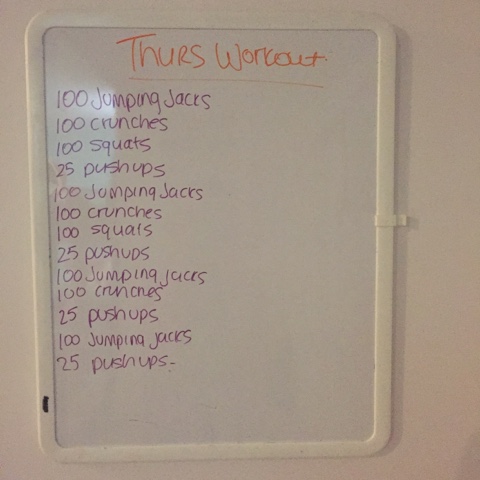 Thurs Workout
100 Jumping Jacks
100 crunches
100 squats
25 pushups
100 Jumping Jacks
100 crunches
100 squats
25 pushups
100 Jumping Jacks
100 crunches
25 pushups
100 Jumping Jacks
25 pushups-